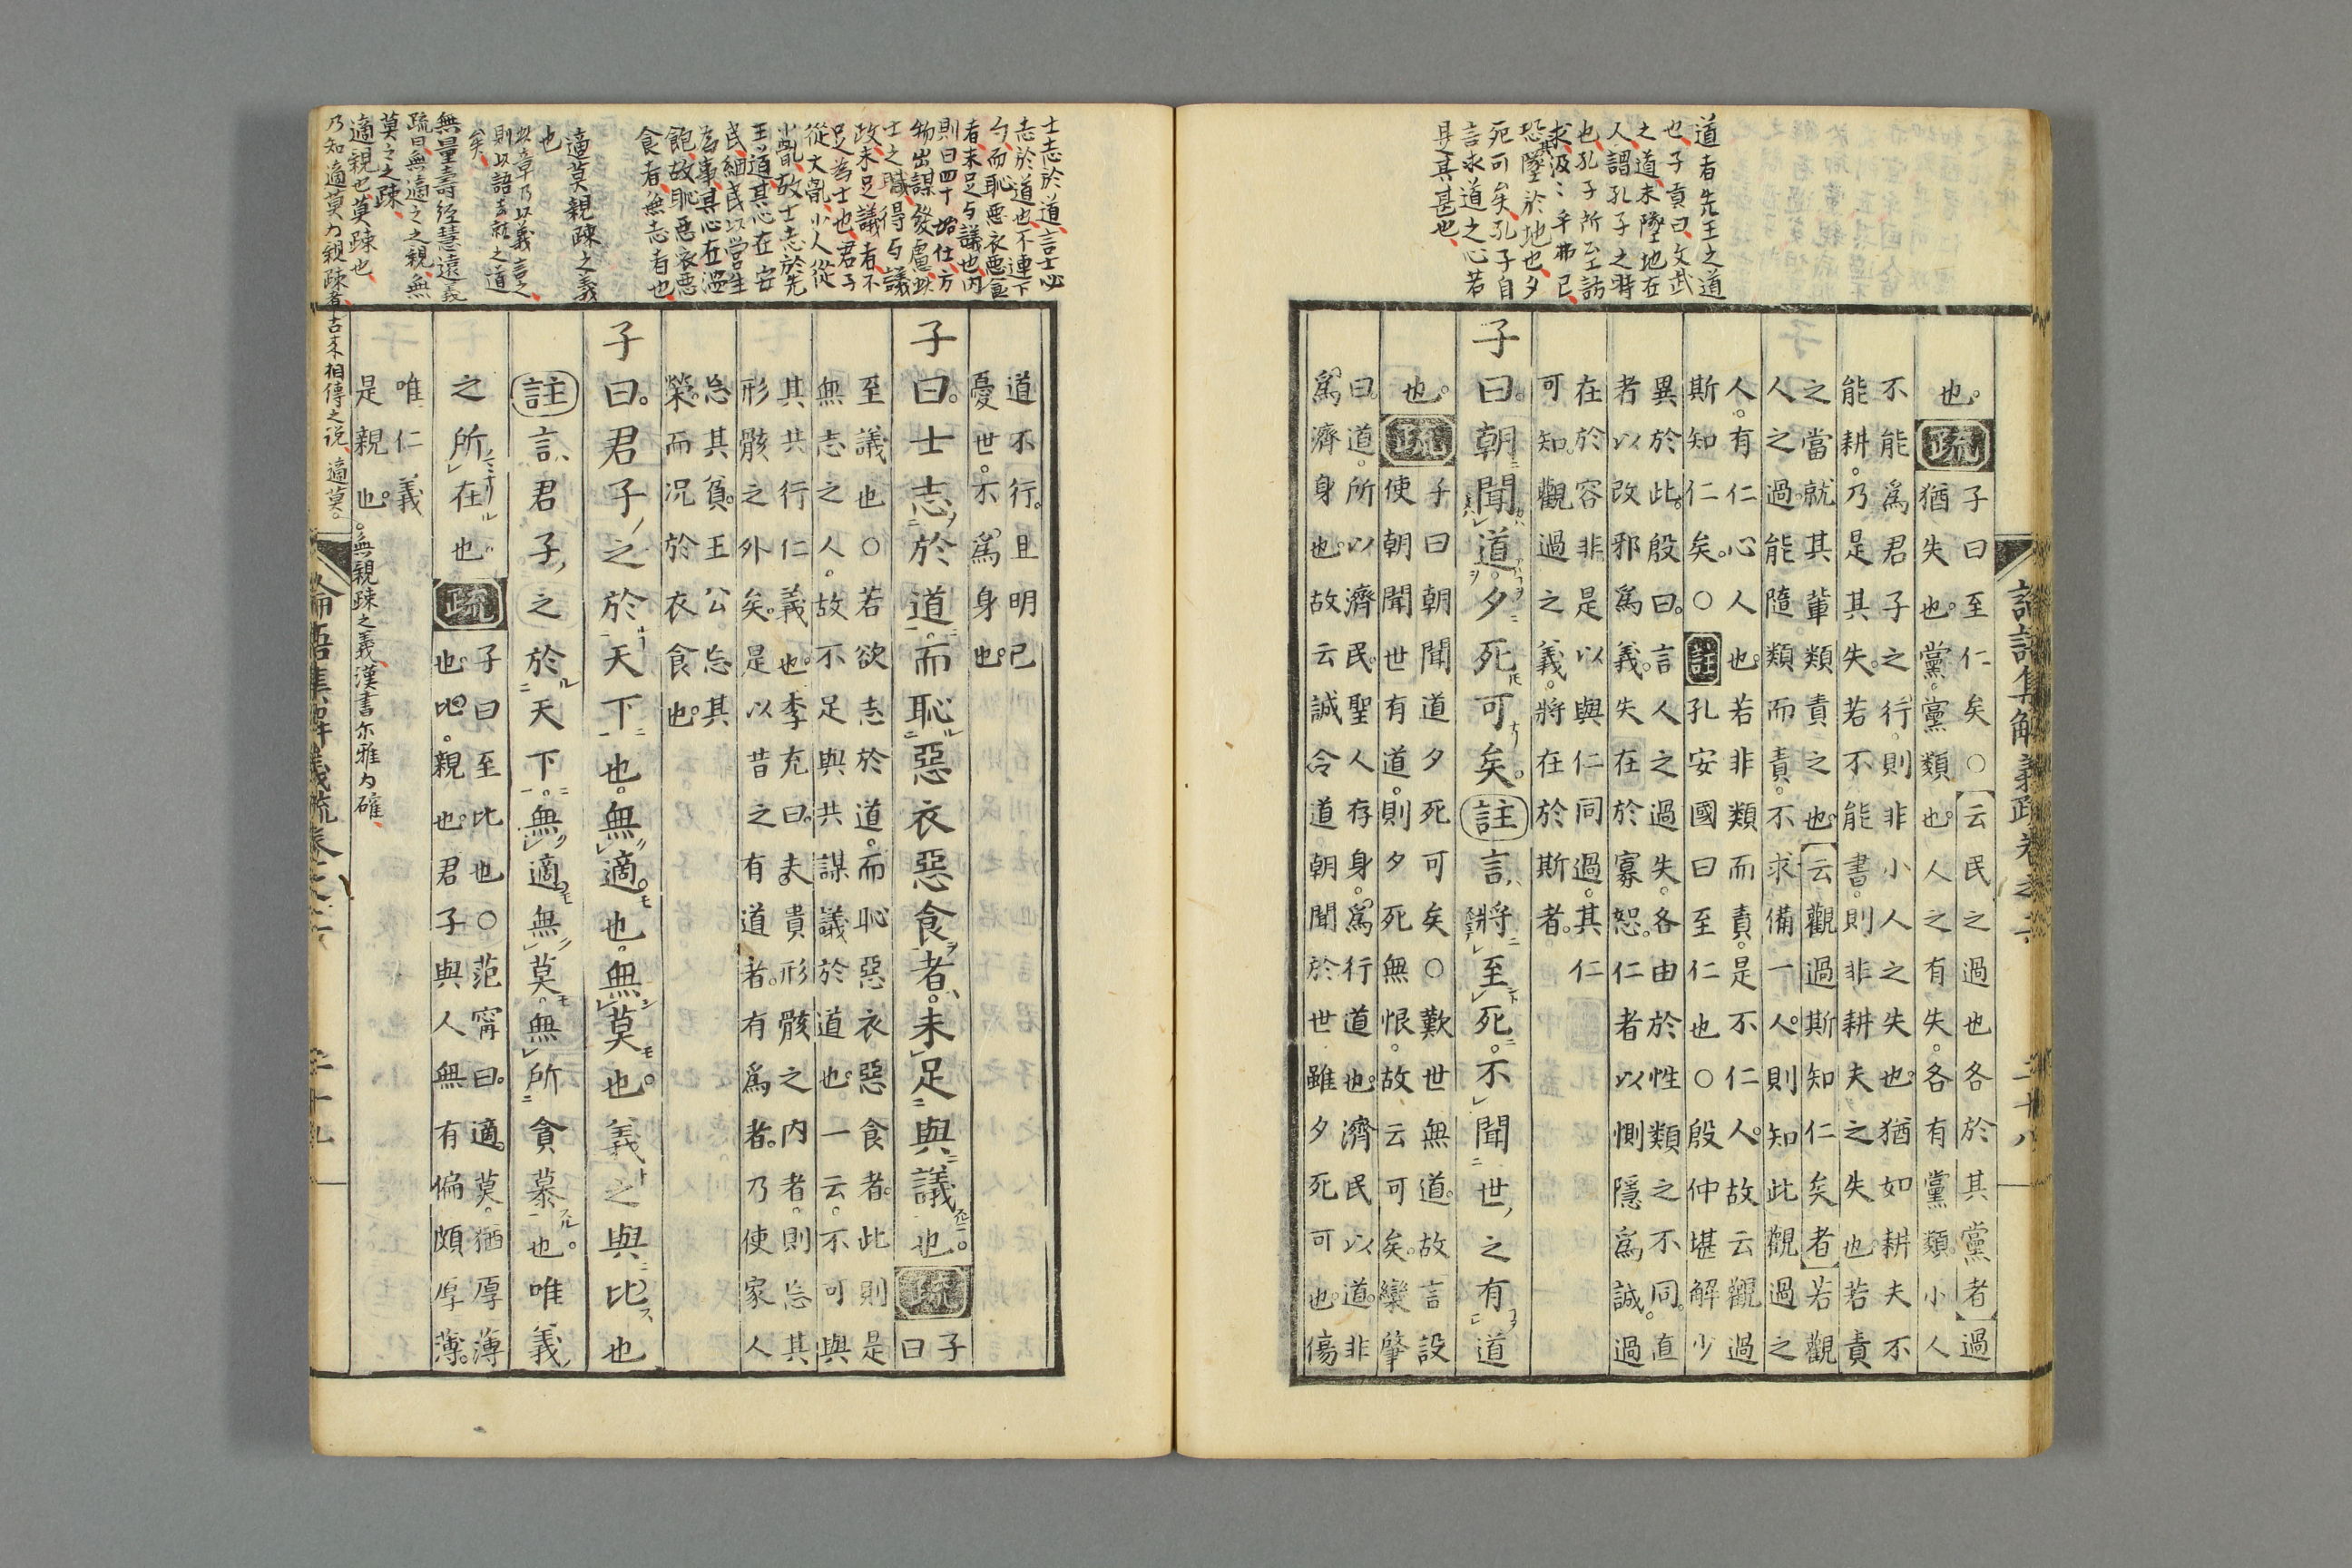 道者先王之道
也子貢曰文武
之道未墜地在
人謂孔子之時
也孔子所至訪
求汲〻乎弗已
恐其墜於地也夕
死可矣孔子自
言求道之心若
是其甚也
論語集解義疏卷之二
二十八
也。疏子曰至仁矣○云民之過也各於其黨者過
猶失也。黨。黨類也。人之有失。各有黨類。小人
不能爲君子之行。則非小人之失也。猶如耕夫不
能耕。乃是其失。若不能書。則非耕夫之失也。若責
之當就其輩類責之也。云觀過斯知仁矣者若觀
人之過。能隨類而責。不求備一人。則知此觀過之
人。有仁心人也。若非類而責。是不仁人。故云觀過
斯知仁矣。○註孔安國曰至仁也○殷仲堪解少
異於此。殷曰。言人之過失。各由於性類之不同。直
者以改邪爲義。失在於寡恕。仁者以惻隱爲誠。過
在於容非。是以與仁同過。其仁
可知。觀過之義。將在於斯者。
子曰。朝聞道。夕死可矣。註言將至死。不聞世之有道
也。疏子曰朝聞道夕死可矣○歎世無道。故言設
使朝聞世有道。則夕死無恨。故云可矣。欒肇
曰。道。所以濟民。聖人存身。爲行道也。濟民以道。非
爲濟身也。故云誠令道朝聞於世雖夕死可也。傷
士志於道言士必
志於道也不連下
勾而恥惡衣惡食
者未足与議也内
則曰四十始仕方
物出謀發慮此
士之職得与議
政未足議者不
足為士也君子
從大亂小人從
小亂故士志於先
王道其心在安
民細民以営生
為事其心在温
飽故恥惡衣惡
食者無志者也
適莫親疎之義
也
此章乃以義言之
則以語去就之道
矣
無量壽經慧遠義
疏曰無適之之親無
莫之之疎
適親也莫疎也
乃知適莫為親疎者古來相傳之説適莫。
。無親疎之義漢書尓雅為確
道不行。且明己
憂世。不爲身也。
子曰。士志於道。而恥惡衣惡食者。未足與議也。疏子曰
至議也○若欲志於道。而恥惡衣惡食者。此則是
無志之人。故不足與共謀議於道也。一云。不可與
其共行仁義也。李充曰。夫貴形骸之内者。則忘其
形骸之外矣。是以昔之有道者。有爲者。乃使家人
忘其貧。王公忘其
榮。而況於衣食也。
子曰。君子之於天下也。無適也。無莫也。義之與比也
註言君子之於天下。無適無莫。無所貪慕也。唯義
之所在也疏子曰至比也○范甯曰。適。莫。猶厚薄
也。比。親也。君子與人無有偏頗厚薄。
唯仁義
是親也。
論語集解義疏卷之二
二十九